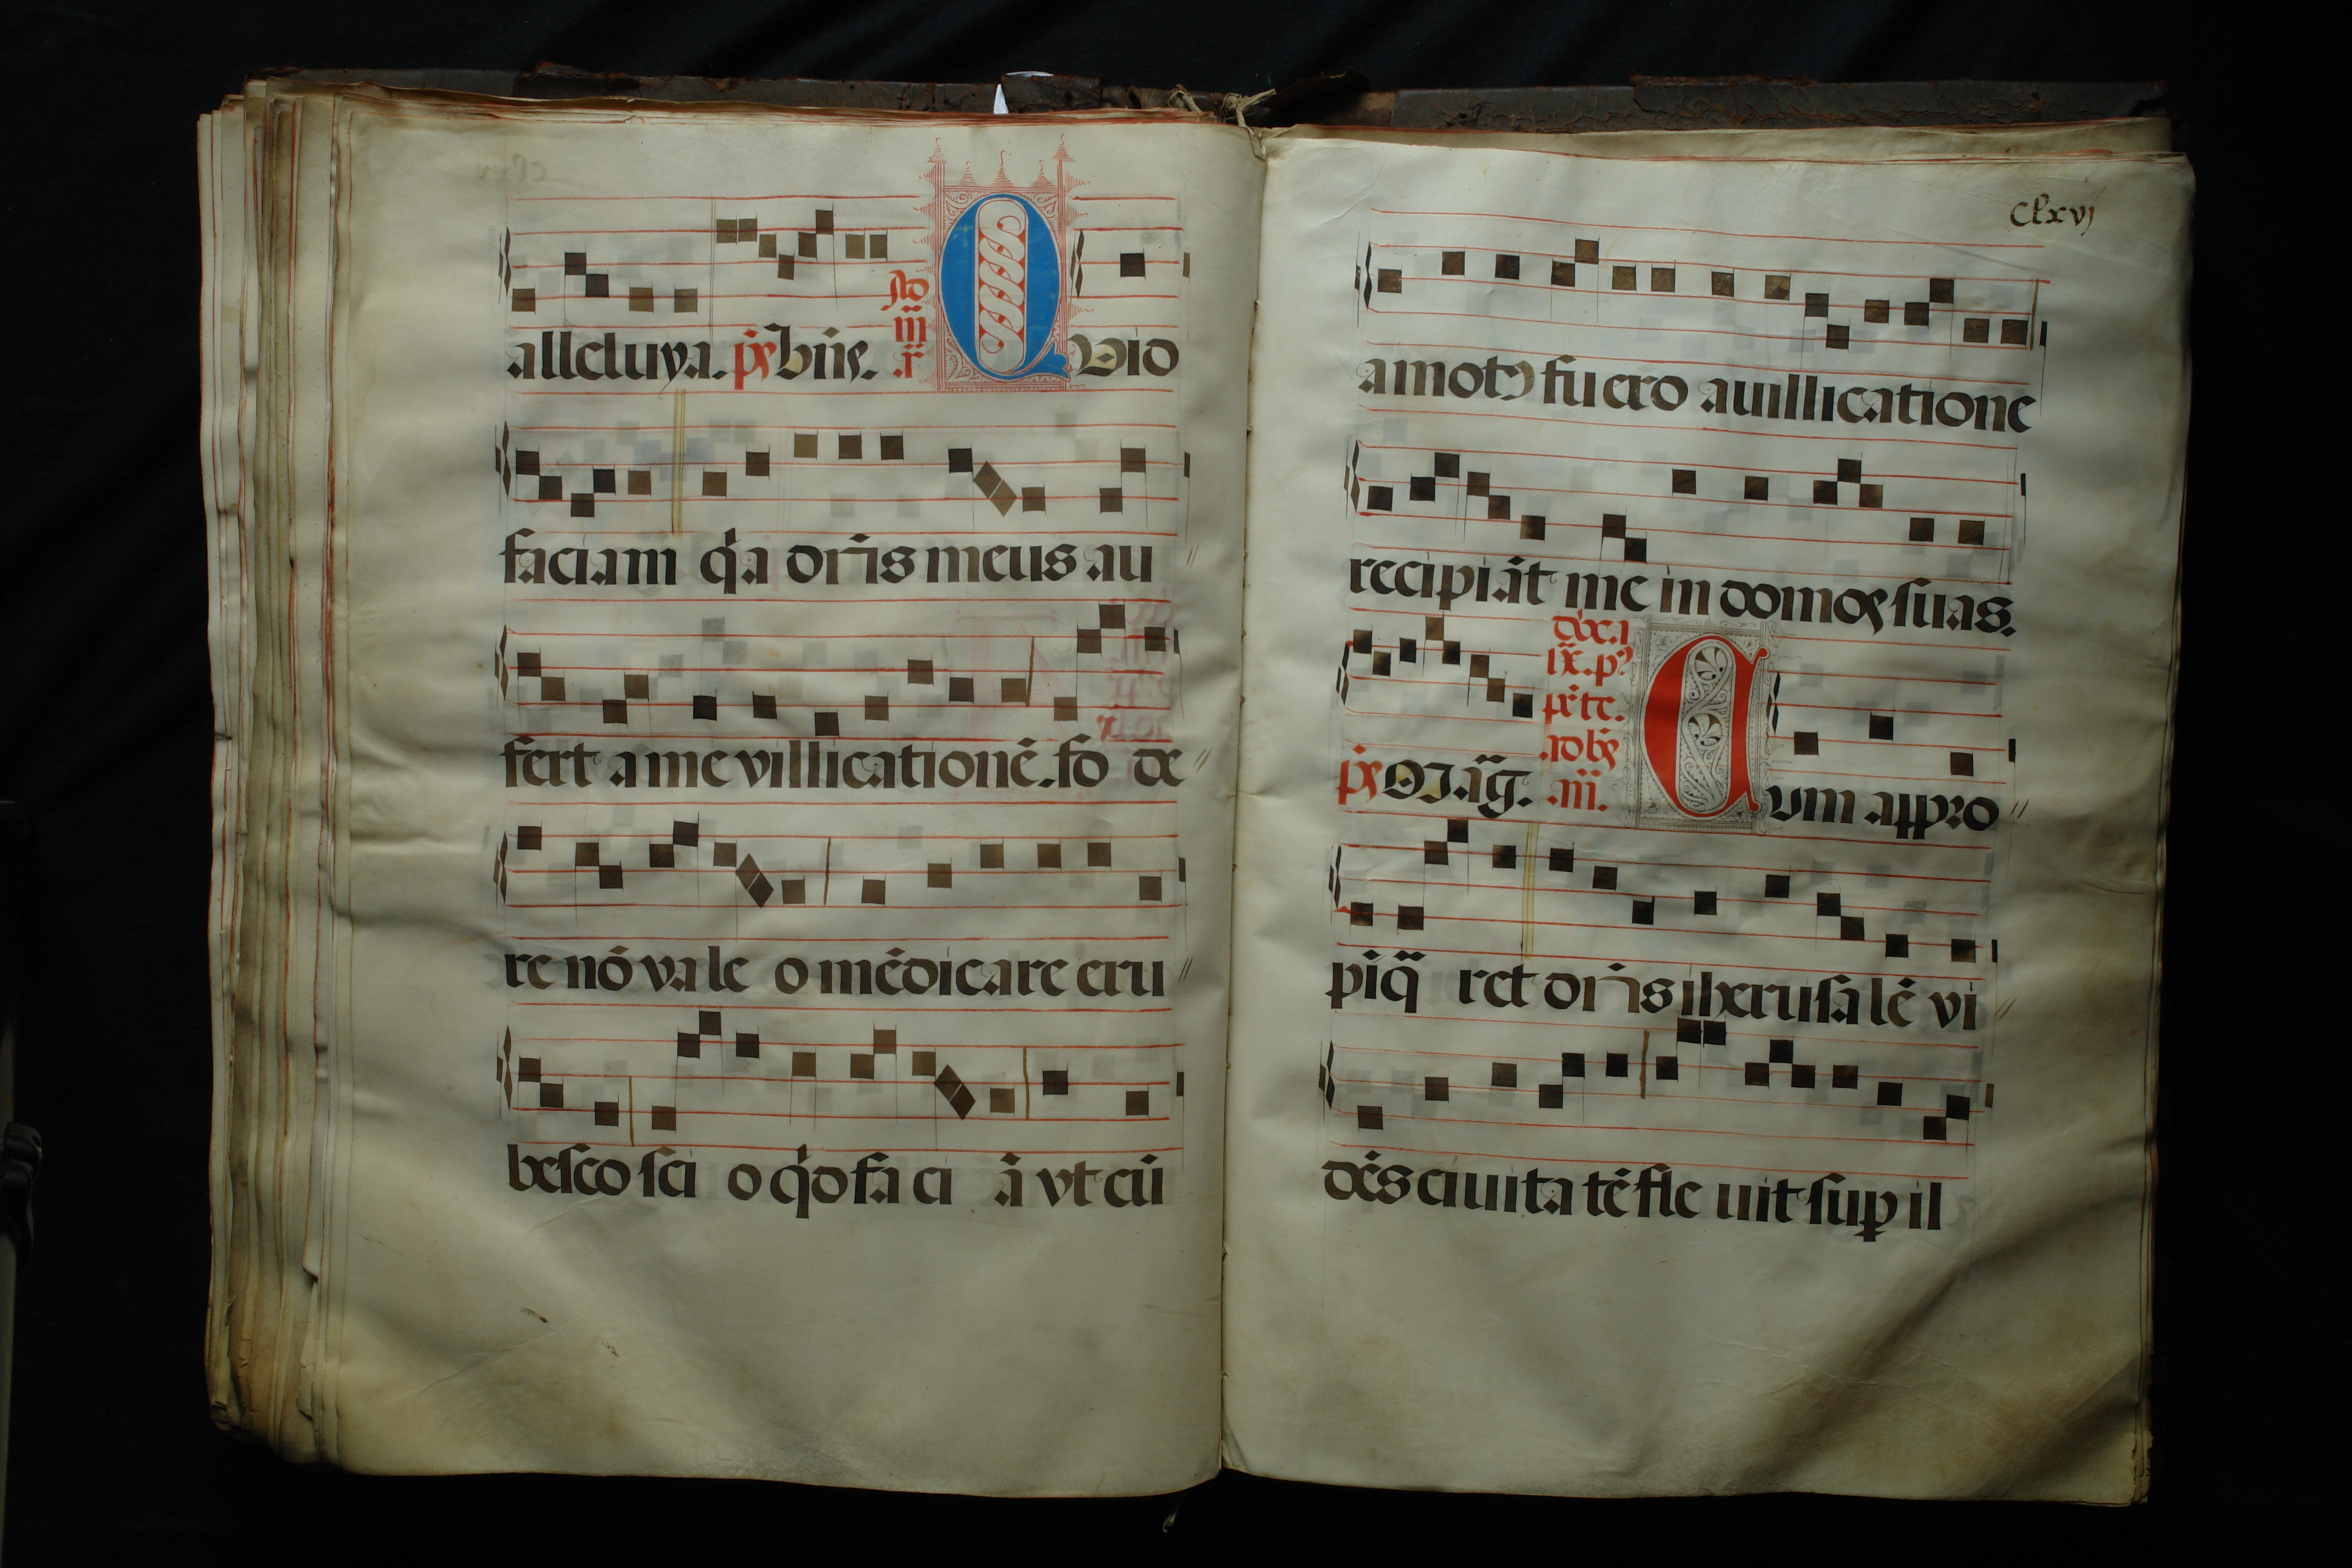 alleluya. ps̃ bñs. Ad
m̃
r̃
QVID
faciam q̇a dñs meus au
fert a me villicationẽ. fo de
re nõ vale o mẽdicare eru
besco sci o q̇d fa ci ã vt cũ
Clxvj
amotꝰ fuero a uillicatione
recipiãt me in domos suas.
ps̃ Mag̃.
Cum appro
piq̃ ret dñs iherusalẽ vi
dẽs ciuita tẽ fle uit suꝑ il